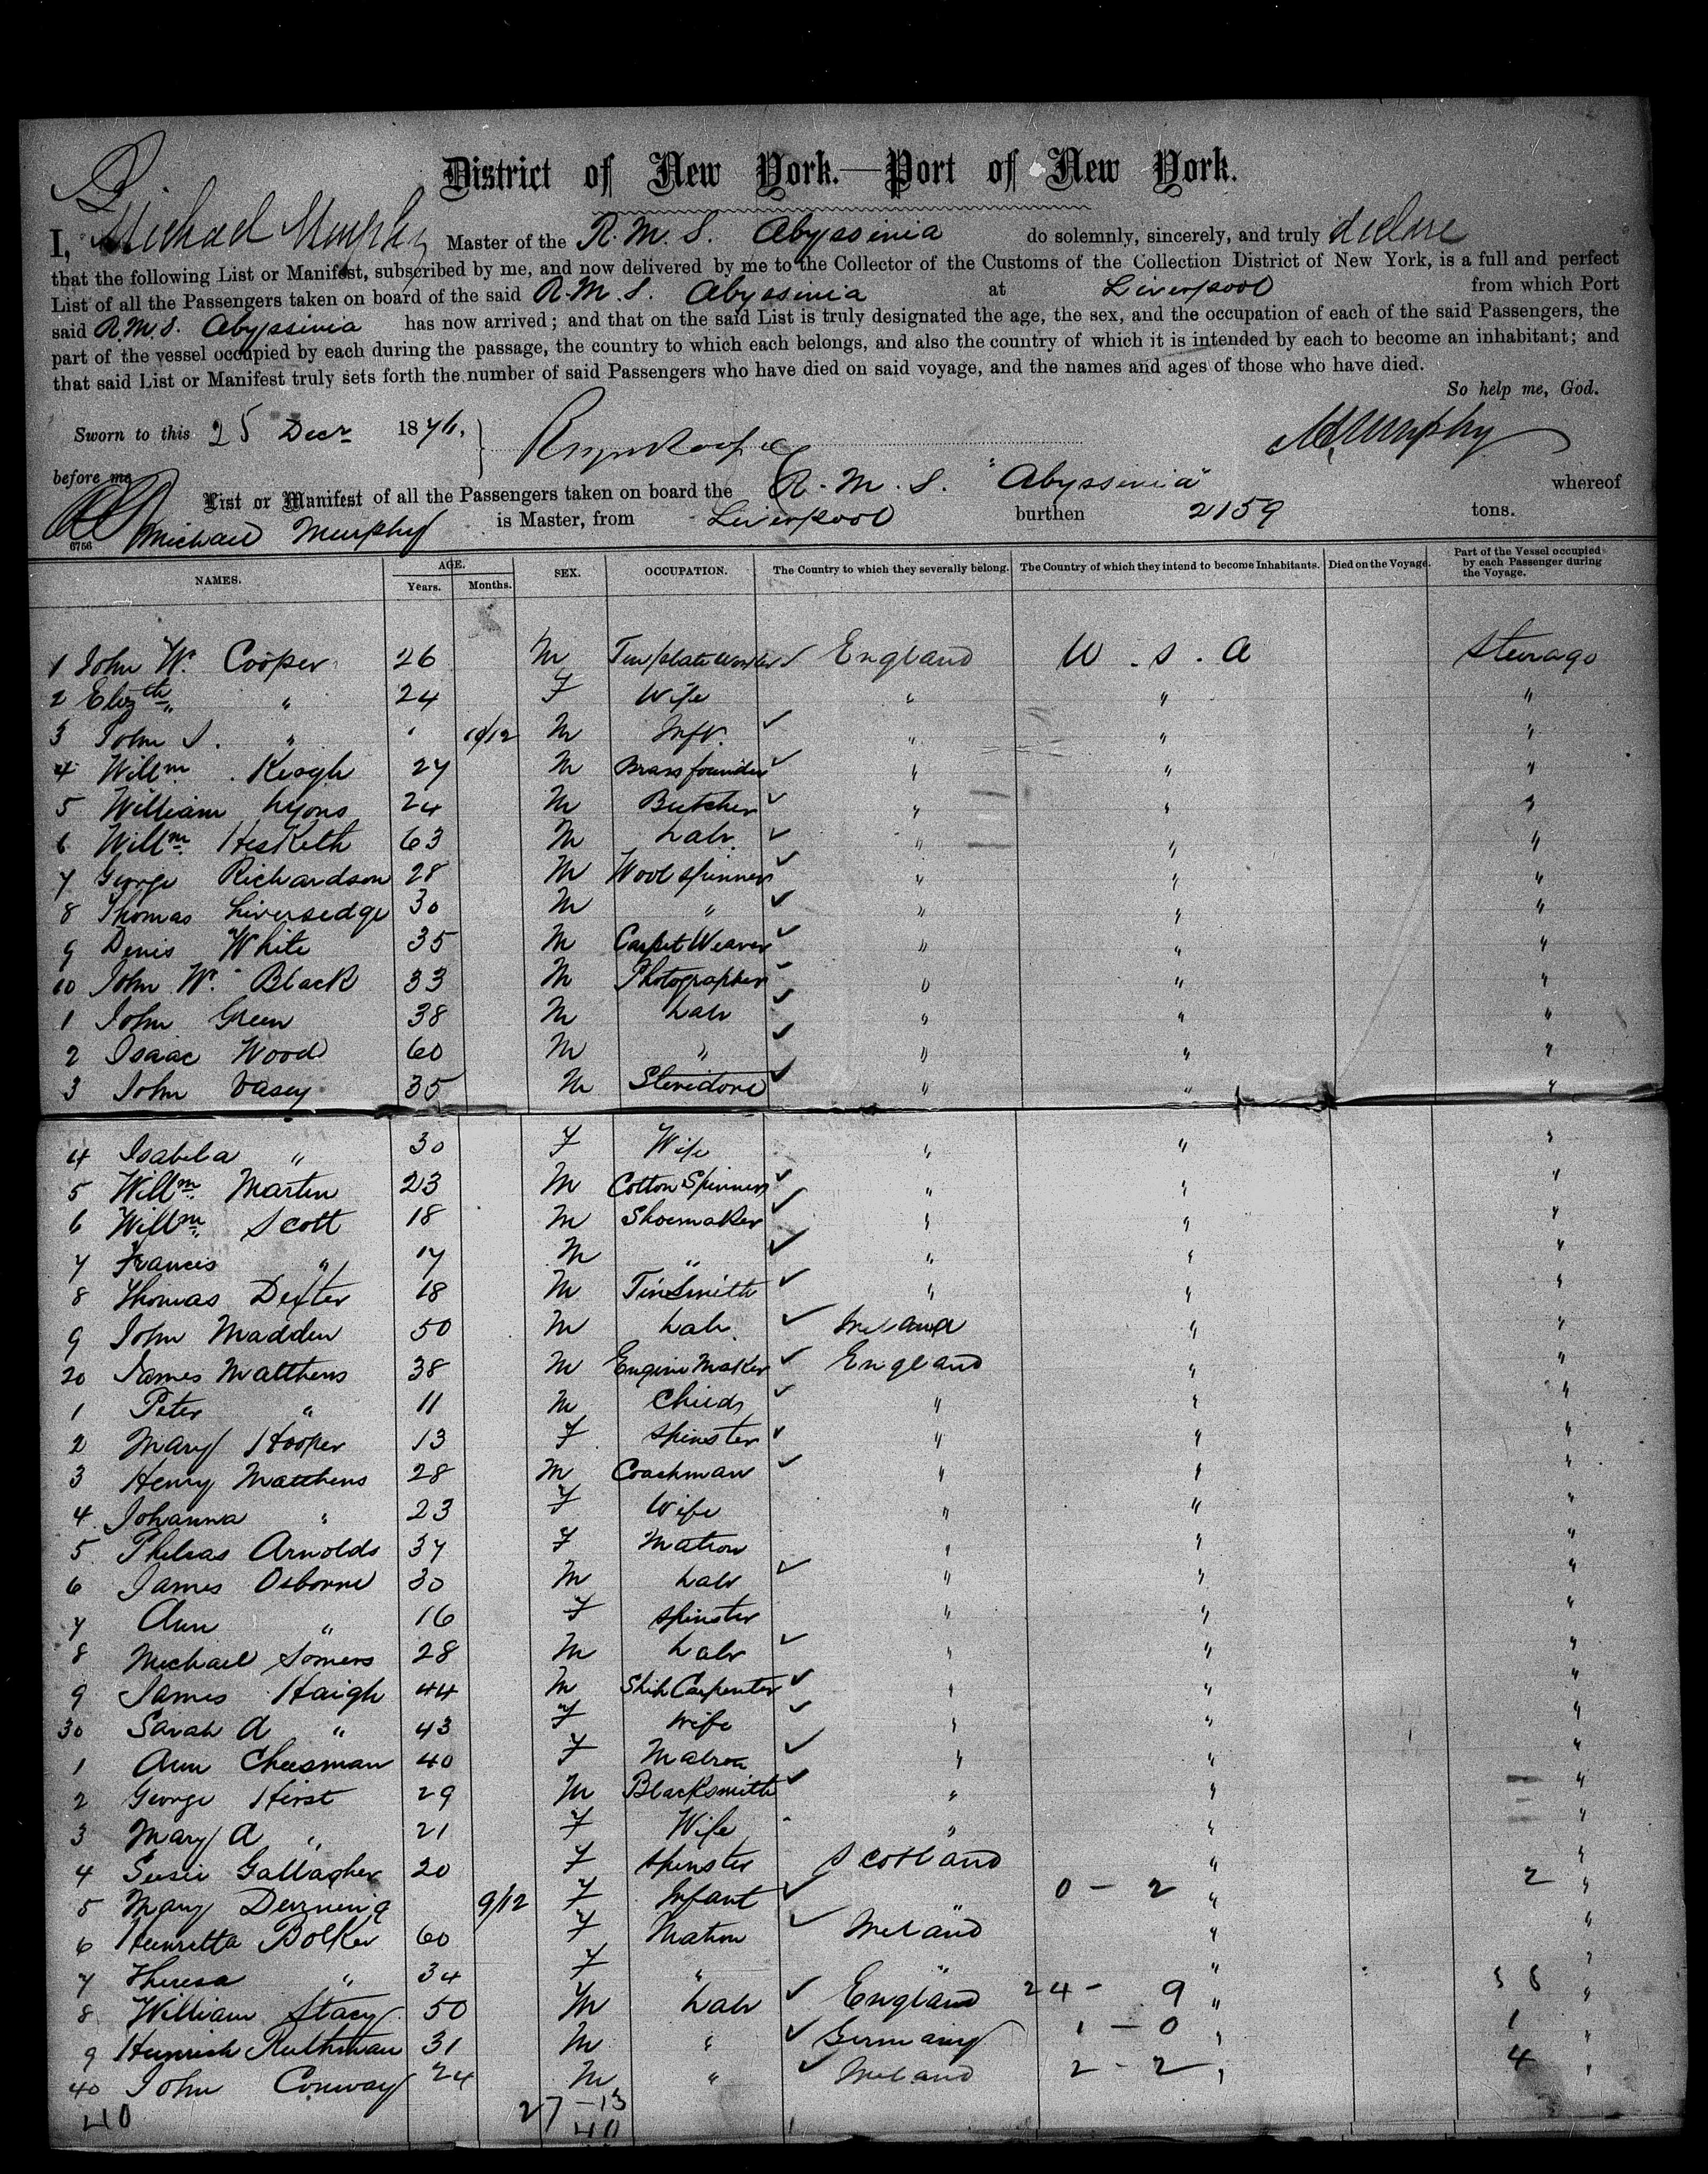 District of New York.—Port of New York.
I, Michael Murphy Master of the R. M. S. Abyssinia do solemnly, sincerely, and truly declare
that the following List or Manifest, subscribed by me, and now delivered by me to the Collector of the Customs of the Collection District of New York, is a full and perfect
List of all the Passengers taken on board of the said R. M. S. Abyssinia at Liverpool from which Port
said R. M. S. Abyssinia has now arrived; and that on the said List is truly designated the age, the sex, and the occupation of each of the said Passengers, the
part of the vessel occupied by each during the passage, the country to which each belongs, and also the country of which it is intended by each to become an inhabitant; and
that said List or Manifest truly sets forth the number of said Passengers who have died on said voyage, and the names and ages of those who have died.
So help me, God.
Sworn to this 25 Decr 1876. M. Murphy
before me
List or Manifest of all the Passengers taken on board the R. M. S. "Abyssinia" whereof
Michael Murphy is Master, from Liverpool burthen 2159 tons.
6756
NAMES. AGE. Years. Months. SEX. OCCUPATION. The Country to which they severally belong. The Country of which they intend to become Inhabitants. Died on the Voyage. Part of the Vessel occupied by each Passenger during the Voyage.
1 John W. Cooper 26 M Tinplate Worker ✓ England U. S. A Steerage
2 Elizth " 24 F Wife " " "
3 John S. " 10/12 M Inft. ✓ " " "
4 Willm. Keogh 27 M Brassfounder ✓ " " "
5 William Lyons 24 M Butcher ✓ " " "
6 Willm. Hesketh 63 M Labr. ✓ " " "
7 George Richardson 28 M Wool spinner ✓ " " "
8 Thomas Liversedge 30 M " ✓ " " "
9 Denis White 35 M Carpet Weaver ✓ " " "
10 John W. Black 33 M Photographer ✓ " " "
1 John Green 38 M Labr ✓ " " "
2 Isaac Wood 60 M " ✓ " " "
3 John Vasey 35 M Stevidore ✓ " " "
4 Isabela " 30 F Wife " " "
5 Willm. Martin 23 M Cotton Spinner ✓ " " "
6 Willm. Scott 18 M Shoemaker ✓ " " "
7 Francis " 17 M " ✓ " " "
8 Thomas Dexter 18 M TinSmith ✓ " " "
9 John Madden 50 M Labr. ✓ Ireland " "
20 James Matthews 38 M Engine Maker ✓ England " "
1 Peter " 11 M Child ✓ " " "
2 Mary Hooper 13 F Spinster ✓ " " "
3 Henry Matthews 28 M Coachman ✓ " " "
4 Johanna " 23 F Wife " " "
5 Arnolds 37 F Matron " " "
6 James Osborne 30 M Labr ✓ " " "
7 Ann " 16 F Spinster " " "
8 Michael Somers 28 M Labr ✓ " " "
9 James Haigh 44 M Ship Carpenter ✓ " " "
30 Sarah A " 43 F Wife ✓ " " "
1 Ann Cheesman 40 F Matron ✓ " " "
2 George Hirst 29 M Blacksmith ✓ " " "
3 Mary A " 21 F Wife " " "
4 Susie Gallagher 20 F Spinster Scotland " "
5 Mary 9/12 F Infant ✓ " 0 - 2 " 2 "
6 Henrietta Bolker 60 F Matron ✓ Ireland " "
7 Theresa " 34 F " " " "
8 William Stacy 50 M Labr ✓ England 24 - 9 "
9 Heinrich Ruthman 31 M " ✓ Germany 1 - 0 " 1 "
40 John Conway 24 M " ✓ Ireland 2 - 2 " 4 "
40 27 - 13
40